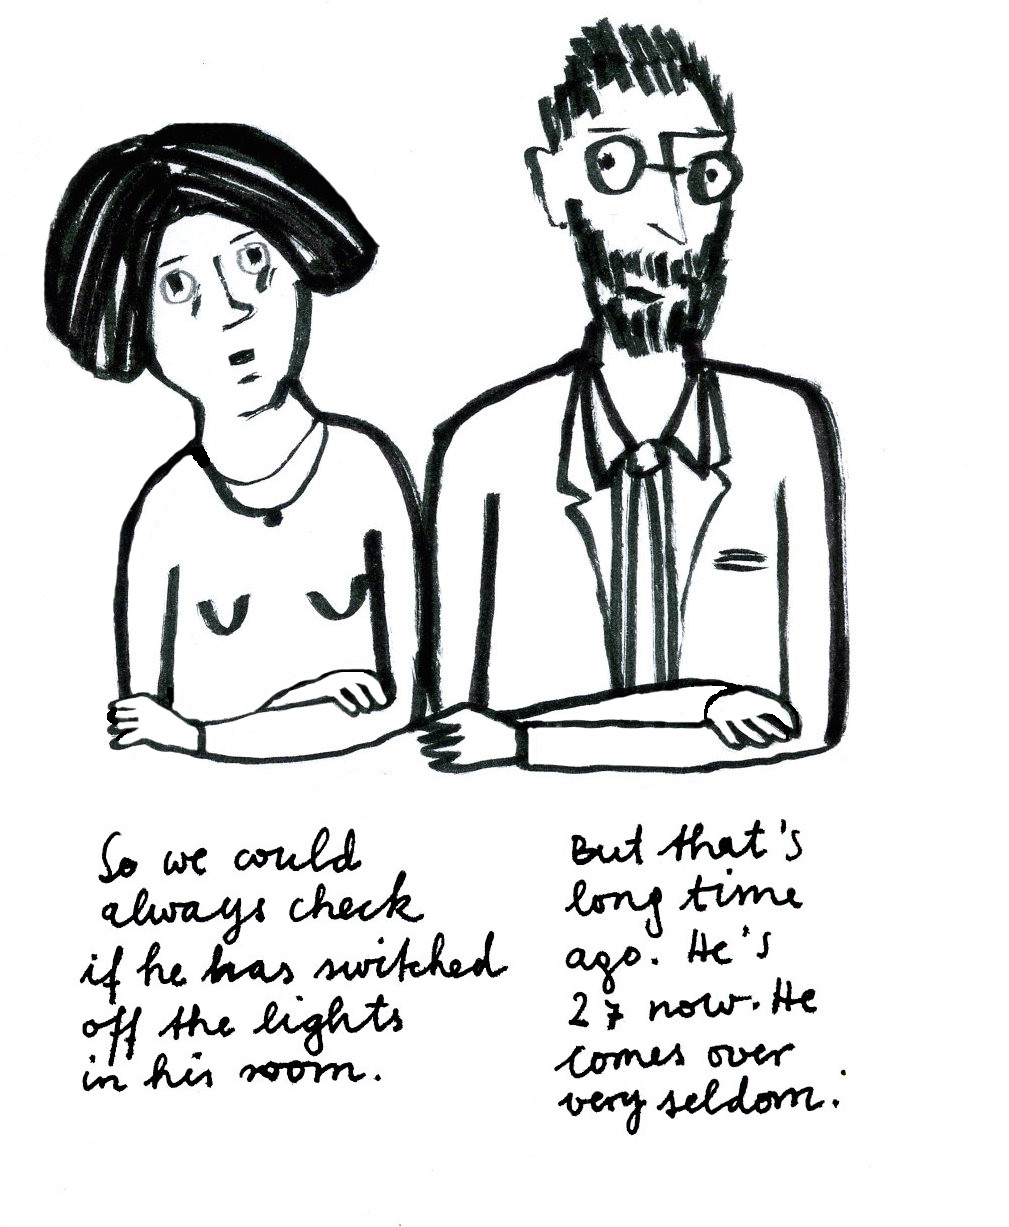 So we could
always check
if he has switched
off the lights
in his room.
But that's
long time
ago. He's
27 now. He
comes over
very seldom.